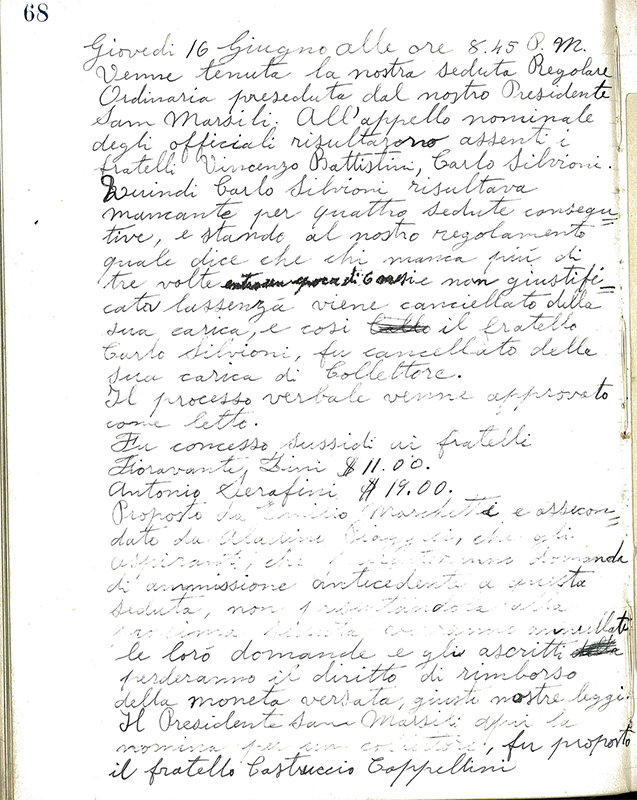 68
Giovedi 16 Giugno alle ore 8.45 P. M.
Venne tenuta la nostra seduta Regolare
Ordinaria preseduta dal nostro Presidente
Sam Marsili. All'appello nominale
degli officiali risultarono assenti i
fratelli Vincenzo Battistini, Carlo Silvioni.
Quindi Carlo Silvioni risultava
mancante per quattro sedute consegu=
tive, e stando al nostro regolamento
quale dice che chi manca piú di
tre volte e non giustifi=
cata lassenza viene cancellato della
sua carica, e cosi il fratello
Carlo Silvioni, fu cancellato delle
sua carica di Collettore.
Il processo verbale venne approvato
come letto.
Fu concesso sussidi ai fratelli
Fioravanti Zini $ 11.00.
Antonio Serafini $ 19.00.
Proposto da Emilio Marchetti e assecon-
dato da che gli
aspiranti, che domanda
di ammissione antecedente a questa
seduta, non presentandosi alla
prossima seduta verranno annullate
le loro domande e gli ascritti
perderanno il diritto di rimborso
della moneta versata, giusto nostre leggi.
Il Presidente Sam Marsili aprí la
nomina per un collettore, fu proposto
il fratello Castruccio Cappellini